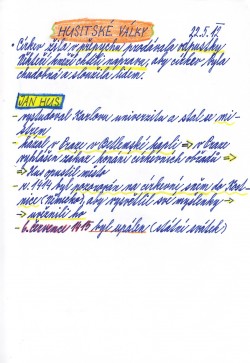 HUSITSKÉ VÁLKY 22.5.12
• Církev žila v přepychu prodávala odpustky
Někteří kněží chtěli nápravu, aby církev byla
chudobná a sloužila lidem.
JAN HUS
- vystudoval Karlovu univerzitu a stal se mi-
strem
- kázal v Praze v Betlémské kapli => v Praze
vyhlášen zákaz konání církevních obřadů =>
=> Hus opustil město
- v r. 1414 byl pozorován na církevní sněm do Kost-
nice (Německo), aby vysvětlil své myšlenky ->
-> uvěznili ho
- 6. července 1415 byl upálen (státní svátek)